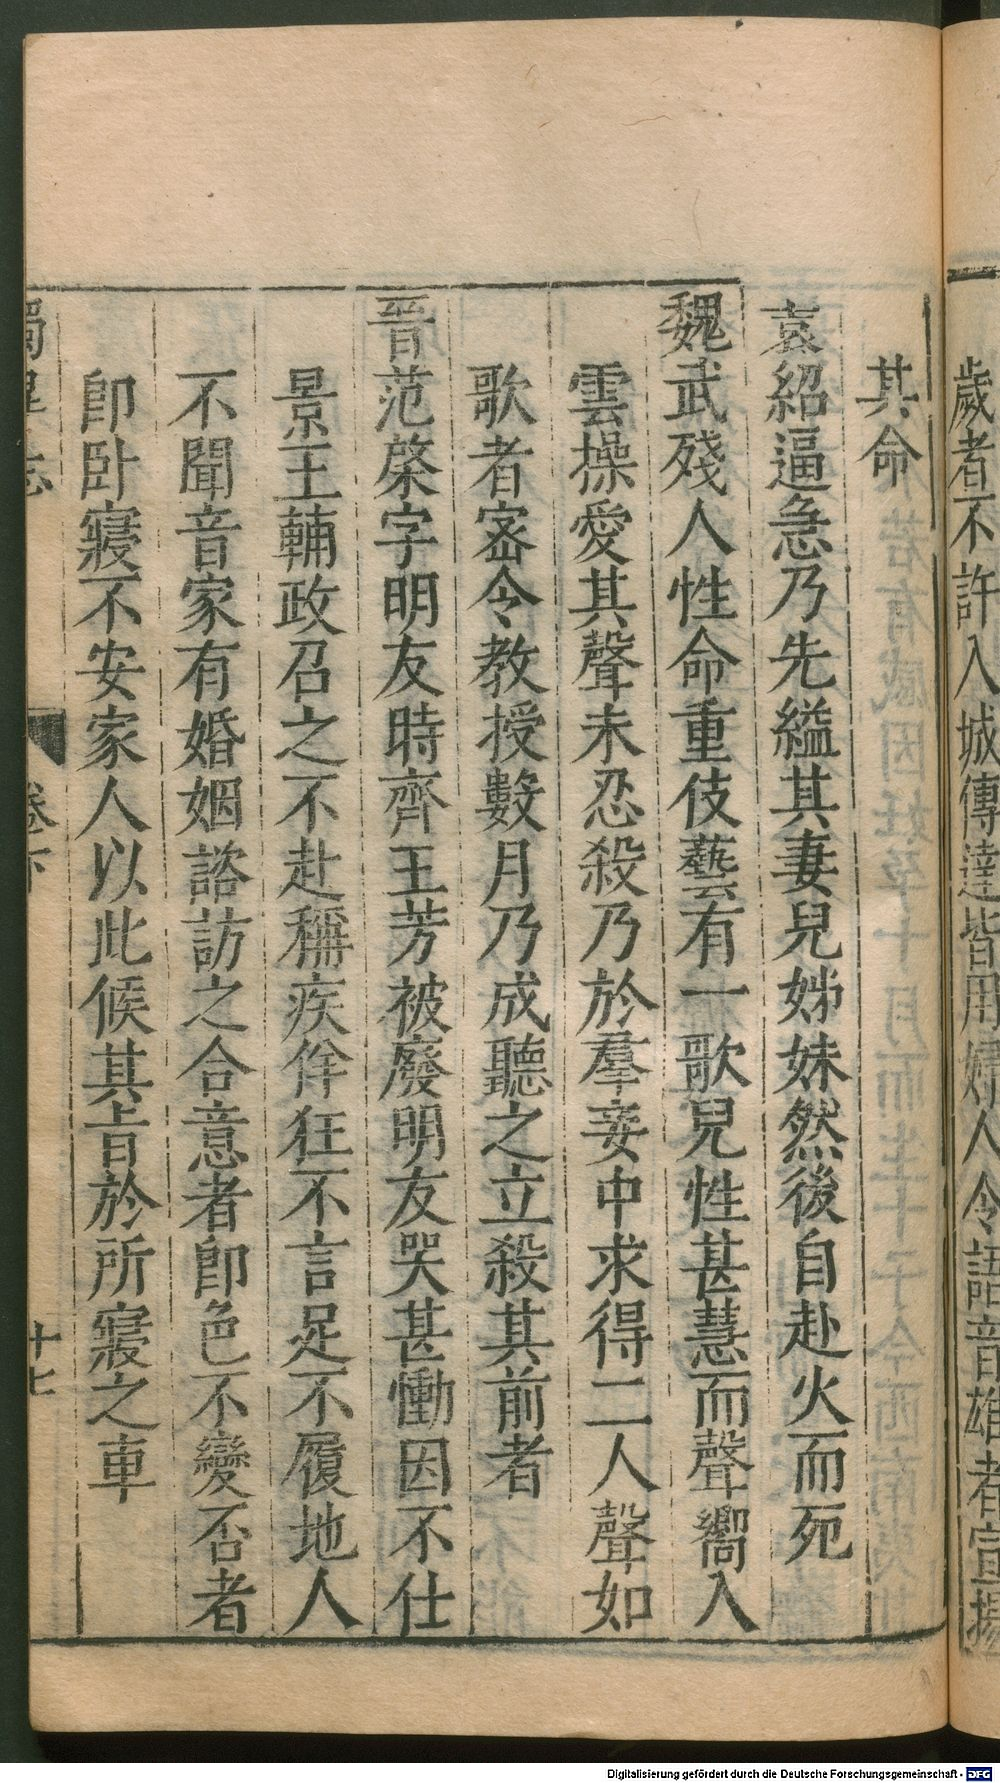 歲者不許入城傳達皆用婦人令語音雄者宣揚
其命
袁紹逼急乃先縊其妻兒姊妹然後自赴火而死
魏武殘人性命重伎藝有一歌兒性甚慧而聲嚮入
雲操愛其聲未忍殺乃於羣妾中求得二人聲如
歌者宻令教授數月乃成聽之立殺其前者
晉范棨字明友時齊王芳被廢明友哭甚慟因不仕
景王輔政召之不赴稱疾佯狂不言足不履地人
不聞音家有婚姻諮訪之合意者卽色不變否者
卽卧寢不安家人以此候其旨於所寢之車
獨異志
卷下
十七
Digitalisierung gefördert durch die Deutsche Forschungsgemeinschaft - DFG